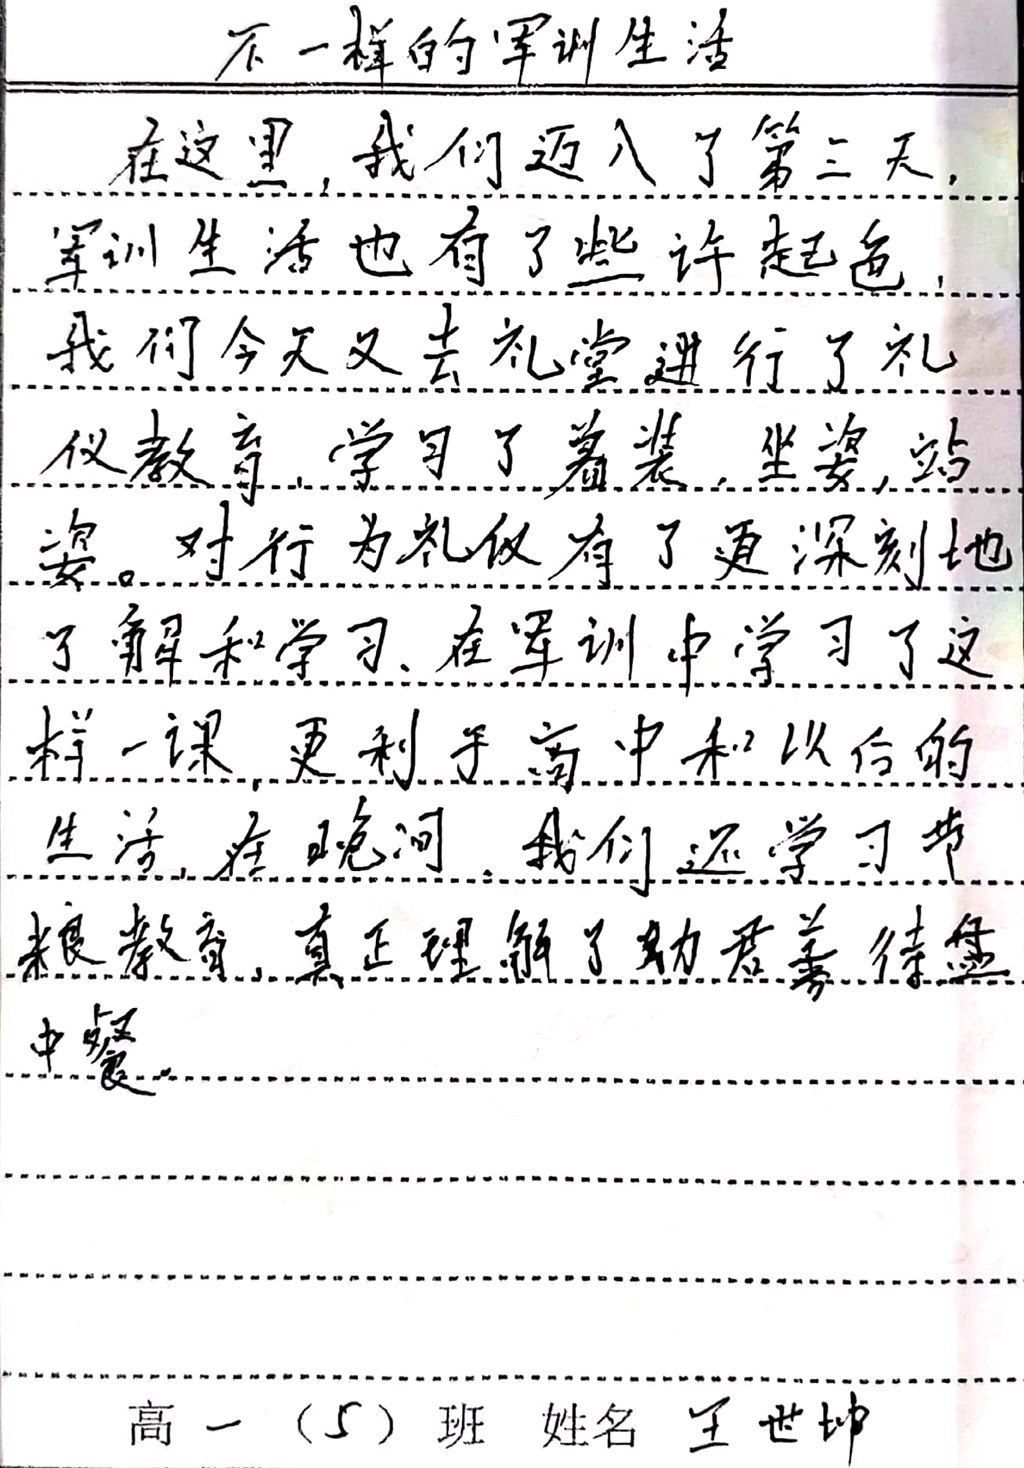 不一样的军训生活
在这里，我们迈入了第三天，
军训生活也有了些许起色，
我们今天又去礼堂进行了礼
仪教育，学习了着装，坐姿，站
姿。对行为礼仪有了更深刻地
了解和学习、在军训中学习了这
样一课，更利于高中和以后的
生活，在晚间，我们还学习节
粮教育，真正理解了劝君善待盘
中餐。
高一（5）班 姓名 王世坤